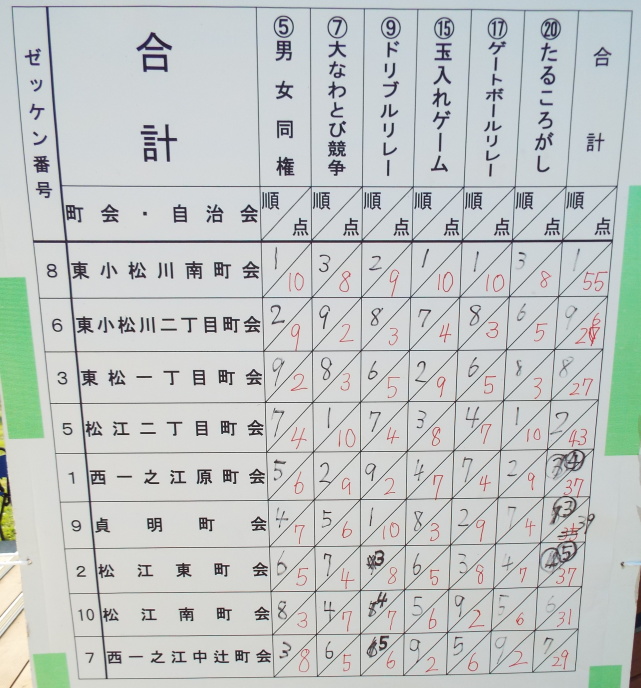 ゼッケン番号 合計 ⑤男女同権 ⑦大なわとび競争 ⑨ドリブルリレー ⑮玉入れゲーム ⑰ゲートボールリレー ⑳たるころがし 合計
町会・自治会 順 点 順 点 順 点 順 点 順 点 順 点 順 点
8 東小松川南町会 1 10 3 8 2 9 1 10 1 10 3 8 1 55
6 東小松川二丁目町会 2 9 9 2 8 3 7 4 8 3 6 5 9 26
3 東松一丁目町会 9 2 8 3 6 5 2 9 6 5 8 3 8 27
5 松江二丁目町会 7 4 1 10 7 4 3 8 4 7 1 10 2 43
1 西一之江原町会 5 6 2 9 9 2 4 7 7 4 2 9 ④ 37
9 貞明町会 4 7 5 6 1 10 8 3 2 9 7 4 ③ 39
2 松江東町会 6 5 7 4 3 8 6 5 3 8 4 7 ⑤ 37
10 松江南町会 8 3 4 7 4 7 5 6 9 2 5 6 6 31
7 西一之江中辻町会 3 8 6 5 5 6 9 2 5 6 9 2 7 29